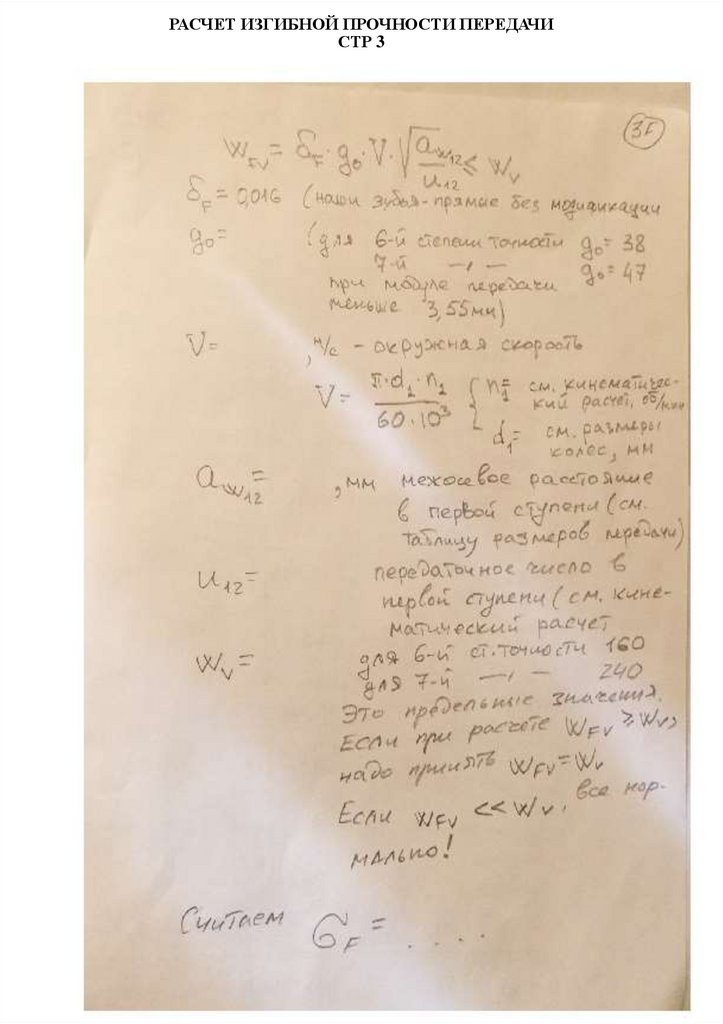 РАСЧЕТ ИЗГИБНОЙ ПРОЧНОСТИ ПЕРЕДАЧИ
СТР 3
3F
W_FV = δ_F · g₀ · V · √(a_w12 / u₁₂) ≤ W_V
δ_F = 0,016 (наши зубья - прямые без модификации
g₀ = (для 6-й степени точности g₀ = 38
7-й —„— g₀ = 47
при модуле передачи
меньше 3,55мм)
V = , м/с - окружная скорость
V = π · d₁ · n₁ / 60 · 10³ { n₁ = см. кинематичес-
кий расчет, об/мин
d₁ = см. размеры
колес, мм
a_w12 = , мм межосевое расстояние
в первой ступени (см.
таблицу размеров передачи)
u₁₂ = передаточное число в
первой ступени (см. кине-
матический расчет
W_V = для 6-й ст. точности 160
для 7-й —„— 240
Это предельные значения.
Если при расчете W_FV ≥ W_V,
надо принять W_FV = W_V
Если W_FV << W_V, все нор-
мально!
Считаем σ_F = . . . .